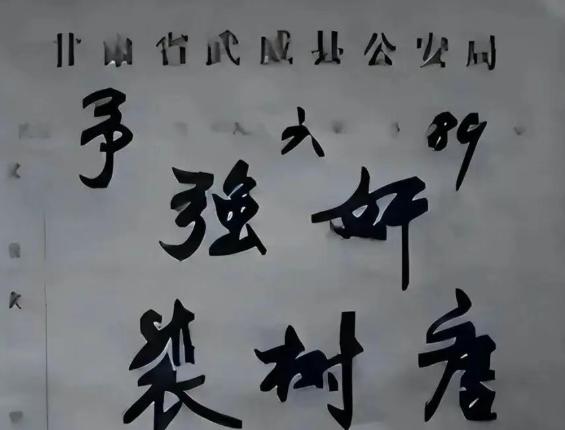 甘肃省武威县公安局
89
强奸
裴树唐